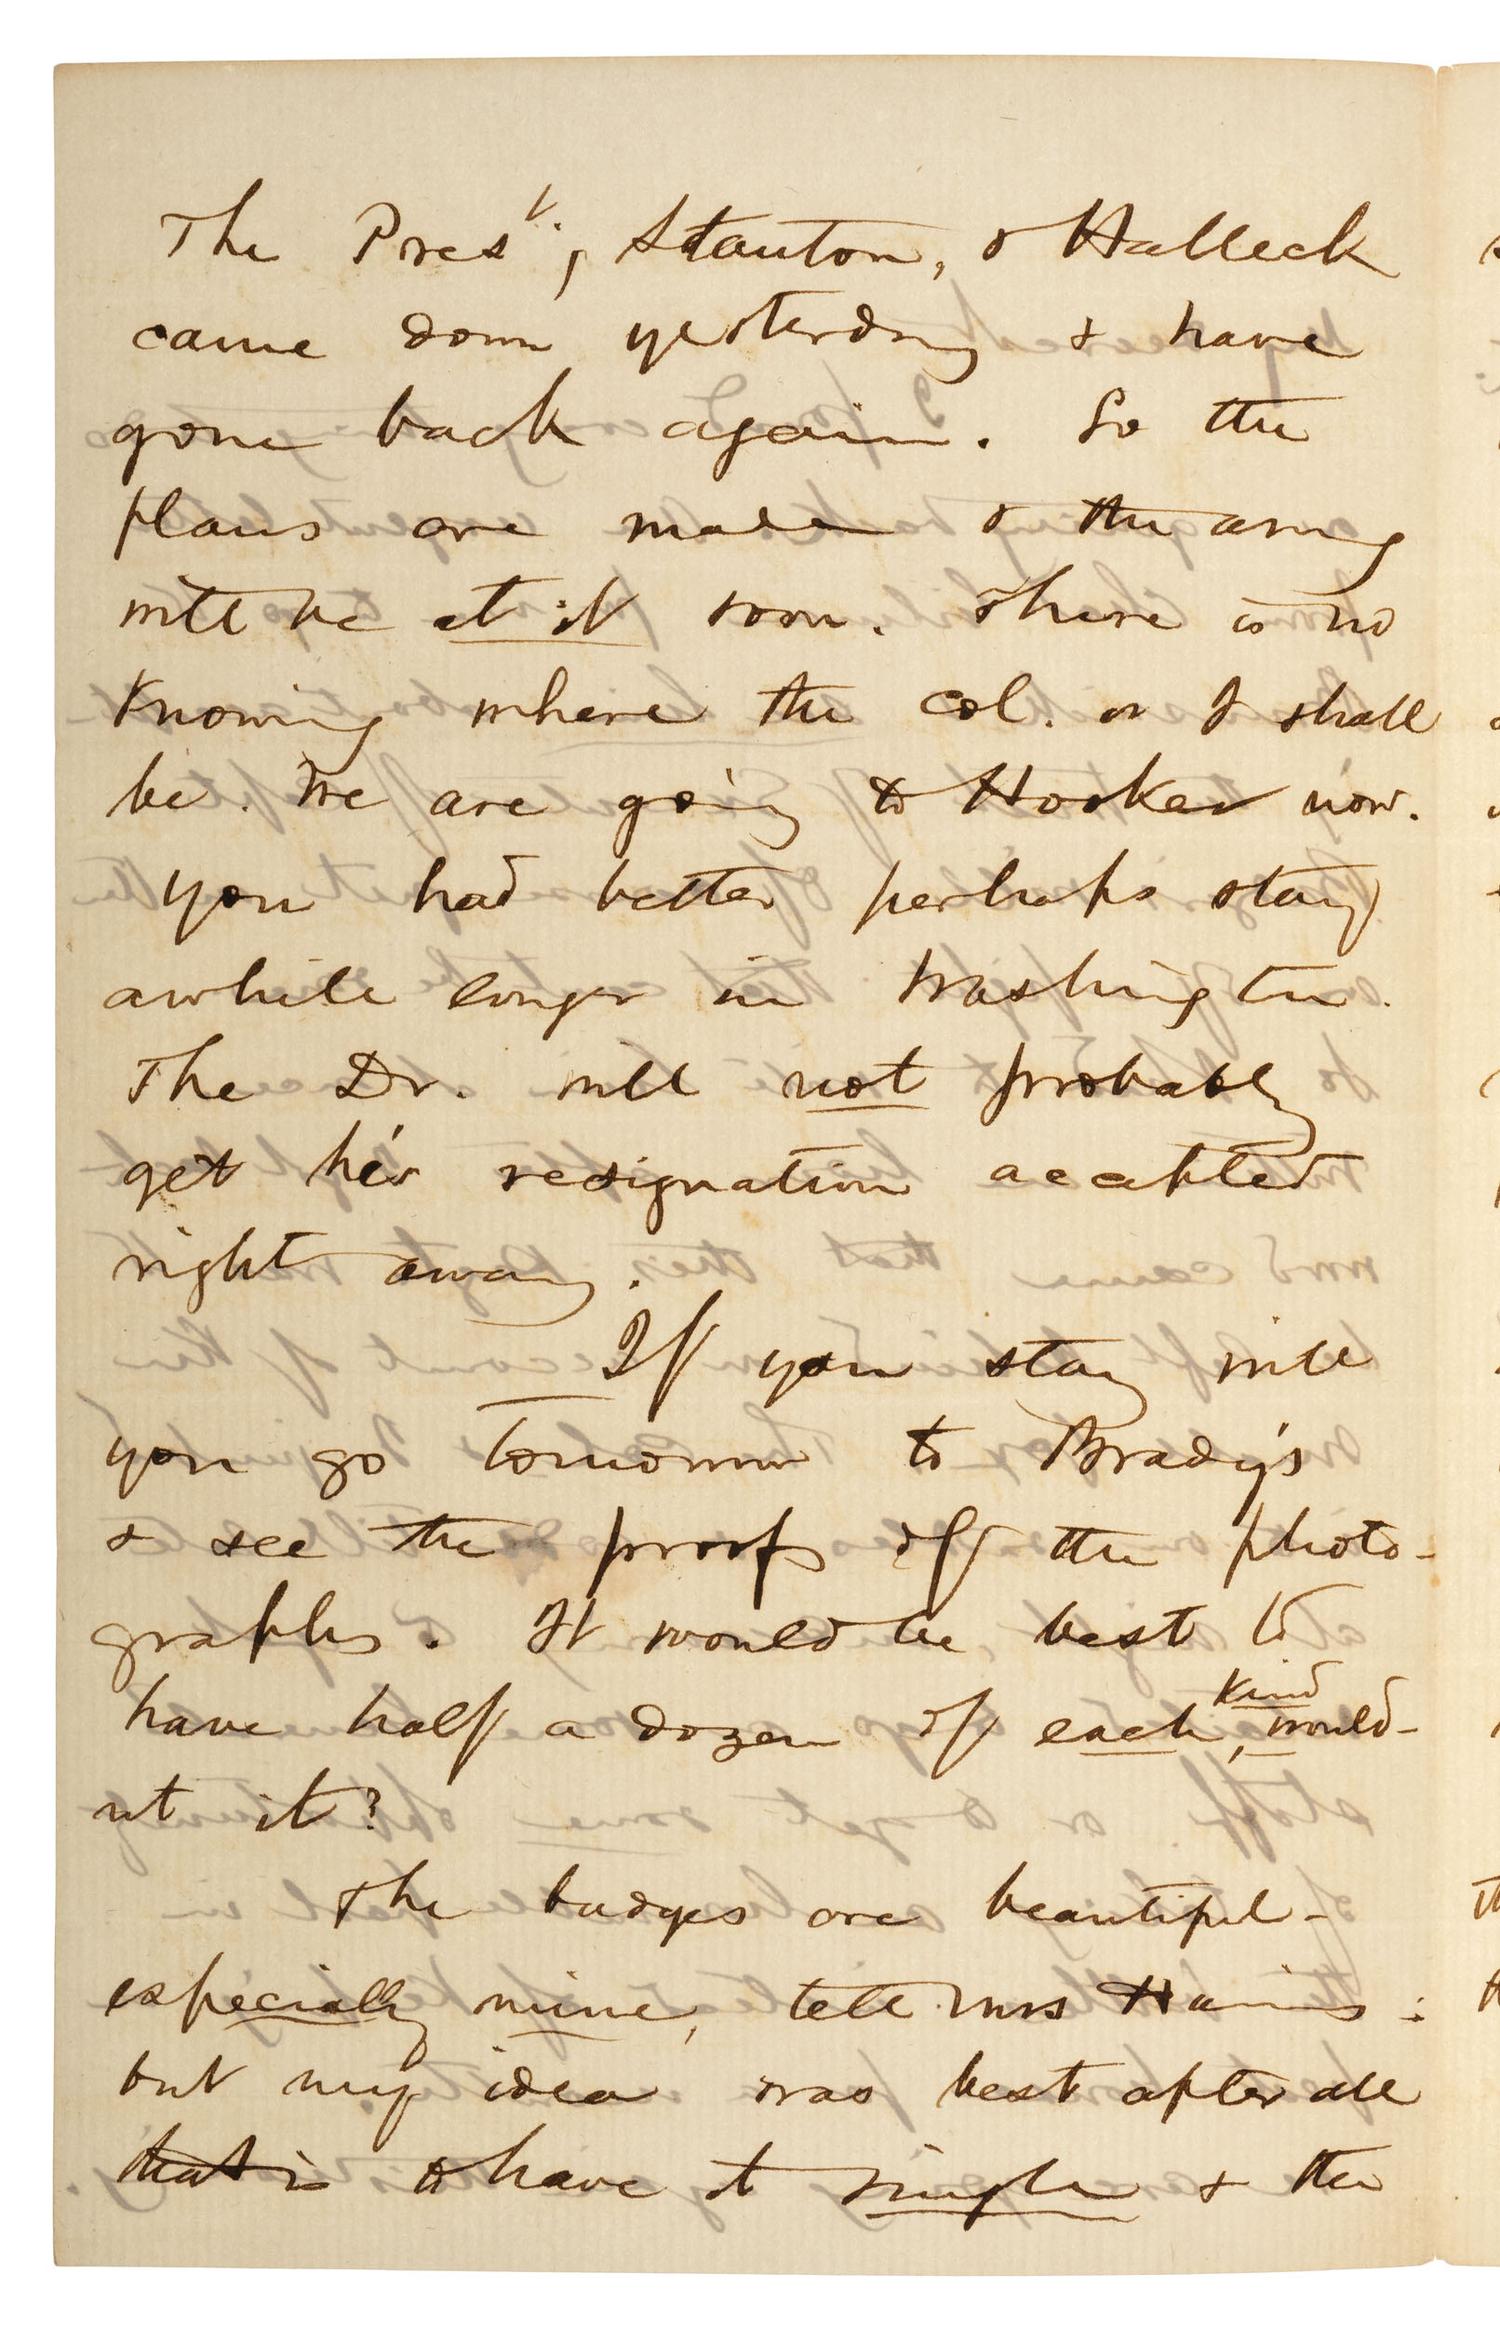 The Pres^t., Stanton, & Halleck
came down yesterday & have
gone back again. So the
plans are made & the army
will be at it soon. There is no
knowing where the Col. or I shall
be. We are going to Hooker now.
You had better perhaps stay
awhile longer in Washington.
The Dr. will not probably
get his resignation accepted
right away.
If you stay will
you go tomorrow to Brady's
& see the proofs off the photo-
graphs. It would be best to
have half a dozen of each, would-
kind
nt it?
The badges are beautiful-
especially mine, tell Mrs Harris:
but my idea was best after all
that is to have it single & the